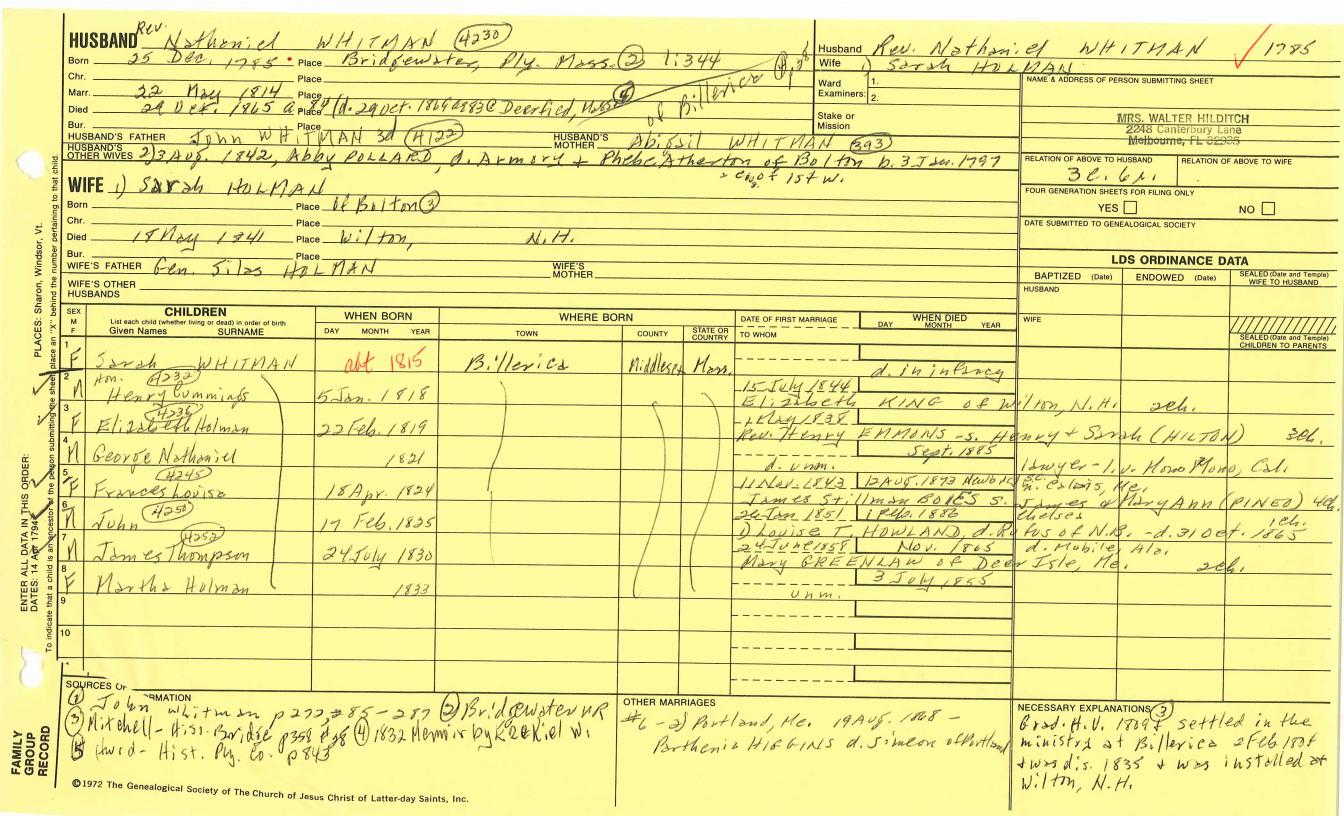 HUSBAND Rev. Nathaniel WHITMAN 4230
Born 25 Dec. 1785 Place Bridgewater, Ply. Mass. 2 1:344
Chr. Place
Marr. 22 May 1814 Place
Died 29 Oct. 1865 Place (d. 29 Oct. 1869 @ Deerfield, Mass. 4
of Billerica
Bur. Place
HUSBAND'S FATHER John WHITMAN 3d 4122 HUSBAND'S MOTHER Abigail WHITMAN 393
HUSBAND'S OTHER WIVES 2) 3 Aug. 1842, Abby POLLARD, d. Armory + Phebe Atherton of Bolton b. 3 Jan. 1797
of 1st w.
WIFE 1) Sarah HOLMAN
Born Place of Bolton 3
Chr. Place
Died 18 May 1841 Place Wilton, N.H.
Bur. Place
WIFE'S FATHER Gen. Silas HOLMAN WIFE'S MOTHER
WIFE'S OTHER HUSBANDS
Husband Rev. Nathaniel WHITMAN 1785
Wife 1) Sarah HOLMAN
Ward Examiners: 1. 2.
Stake or Mission
NAME & ADDRESS OF PERSON SUBMITTING SHEET
MRS. WALTER HILDITCH
2248 Canterbury Lane
Melbourne, FL 32935
RELATION OF ABOVE TO HUSBAND RELATION OF ABOVE TO WIFE
3c. 6r.
FOUR GENERATION SHEETS FOR FILING ONLY
YES NO
DATE SUBMITTED TO GENEALOGICAL SOCIETY
LDS ORDINANCE DATA
BAPTIZED (Date) ENDOWED (Date) SEALED (Date and Temple) WIFE TO HUSBAND
HUSBAND
WIFE
SEALED (Date and Temple) CHILDREN TO PARENTS
SEX M F CHILDREN WHEN BORN WHERE BORN DATE OF FIRST MARRIAGE WHEN DIED
List each child (whether living or dead) in order of birth
Given Names SURNAME DAY MONTH YEAR TOWN COUNTY STATE OR COUNTRY TO WHOM DAY MONTH YEAR
1 F Sarah WHITMAN abt 1815 Billerica Middlesex Mass. d. in infancy
2 M Hon. 4232 Henry Cummings 5 Jan. 1818 15 July 1844
Elizabeth KING of Wilton, N.H. 2ch.
3 F 4236 Elizabeth Holman 22 Feb. 1819 1 May 1838
Rev. Henry EMMONS - s. Henry + Sarah (HILTON) 3ch.
4 M George Nathaniel 1821 Sept. 1885
d. unm. lawyer - Mono, Cal.
5 F 4245 Frances Louisa 18 Apr. 1824 11 Nov. 1843 12 Aug. 1873
n. Calais, Me.
James Stillman s. James + Mary Ann (PINEO) 4ch.
6 M John 4250 17 Feb. 1825 26 Jan 1851 1 Feb. 1886 Chelsea
1) Louise T. HOWLAND, d. Rufus of N.B. - d. 31 Oct. 1865 1ch.
7 M 4252 James Thompson 24 July 1830 24 June 1858 Nov. 1865 d. Mobile, Ala.
Mary GREENLAW of Deer Isle, Me. 2ch.
8 F Martha Holman 1833 3 July 1855
unm.
9
10
SOURCES OF INFORMATION
1 John Whitman p 277, 285-287 2 Bridgewater VR
3 Mitchell - His. Bridge p358 4 1832 Memoir by Ezekiel W.
5 Hurd - Hist. Ply. Co. p 843
OTHER MARRIAGES
#6 - 2) Portland, Me. 19 Aug. 1868 -
Parthenia HIGGINS d. Simeon of Portland
NECESSARY EXPLANATIONS 3
Grad. H.U. 1809 settled in the
ministry at Billerica 2 Feb
+ was dis. 1835 + was installed at
Wilton, N.H.
©1972 The Genealogical Society of The Church of Jesus Christ of Latter-day Saints, Inc.
FAMILY GROUP RECORD
ENTER ALL DATA IN THIS ORDER:
DATES: 14 Apr 1794
PLACES: Sharon, Windsor, Vt.
To indicate that a child is an ancestor of the person submitting the sheet, place an "X" behind the number pertaining to that child.